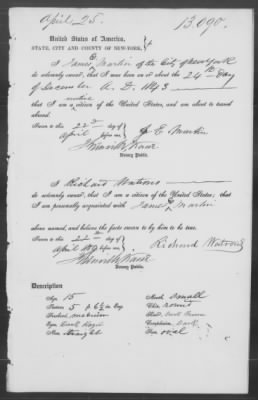 April 25.
13,090.
United States of America,
STATE, CITY AND COUNTY OF NEW-YORK,
I James E Martin of the City of New York
do solemnly swear, that I was born on or about the 24th Day
of December A.D. 1843
native
that I am a citizen of the United States, and am about to travel
abroad.
Sworn to this 22d day of
April before me
J E Martin
Notary Public.
I Richard Watrous
do solemnly swear, that I am a citizen of the United States; that
I am personally acquainted with James E Martin
above named, and believe the facts sworn to by him to be true.
Sworn to this 22d day of
April before me.
Richard Watrous
Notary Public.
Description
Age
Stature 5 ft 6½ in Eng
Forehead medium
Eyes Dark
Nose straight
Mouth small
Chin round
Hair Dark Brown
Complexion Dark
Face oval